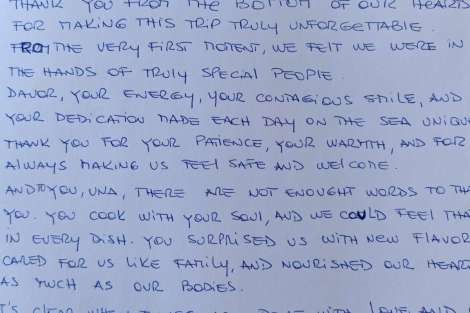 THANK YOU FROM THE BOTTOM OF OUR HEARTS
FOR MAKING THIS TRIP TRULY UNFORGETTABLE.
FROM THE VERY FIRST MOMENT, WE FELT WE WERE IN
THE HANDS OF TRULY SPECIAL PEOPLE.
DAVOR, YOUR ENERGY, YOUR CONTAGIOUS SMILE, AND
YOUR DEDICATION MADE EACH DAY ON THE SEA UNIQU
THANK YOU FOR YOUR PATIENCE, YOUR WARMTH, AND FOR
ALWAYS MAKING US FEEL SAFE AND WELCOME.
AND YOU, UNA, THERE ARE NOT ENOUGHT WORDS TO THA
YOU. YOU COOK WITH YOUR SOUL, AND WE COULD FEEL THA
IN EVERY DISH. YOU SURPRISED US WITH NEW FLAVOR
CARED FOR US LIKE FAMILY, AND NOURISHED OUR HEAR
AS MUCH AS OUR BODIES.
IT'S CLEAR WITH LOVE AND